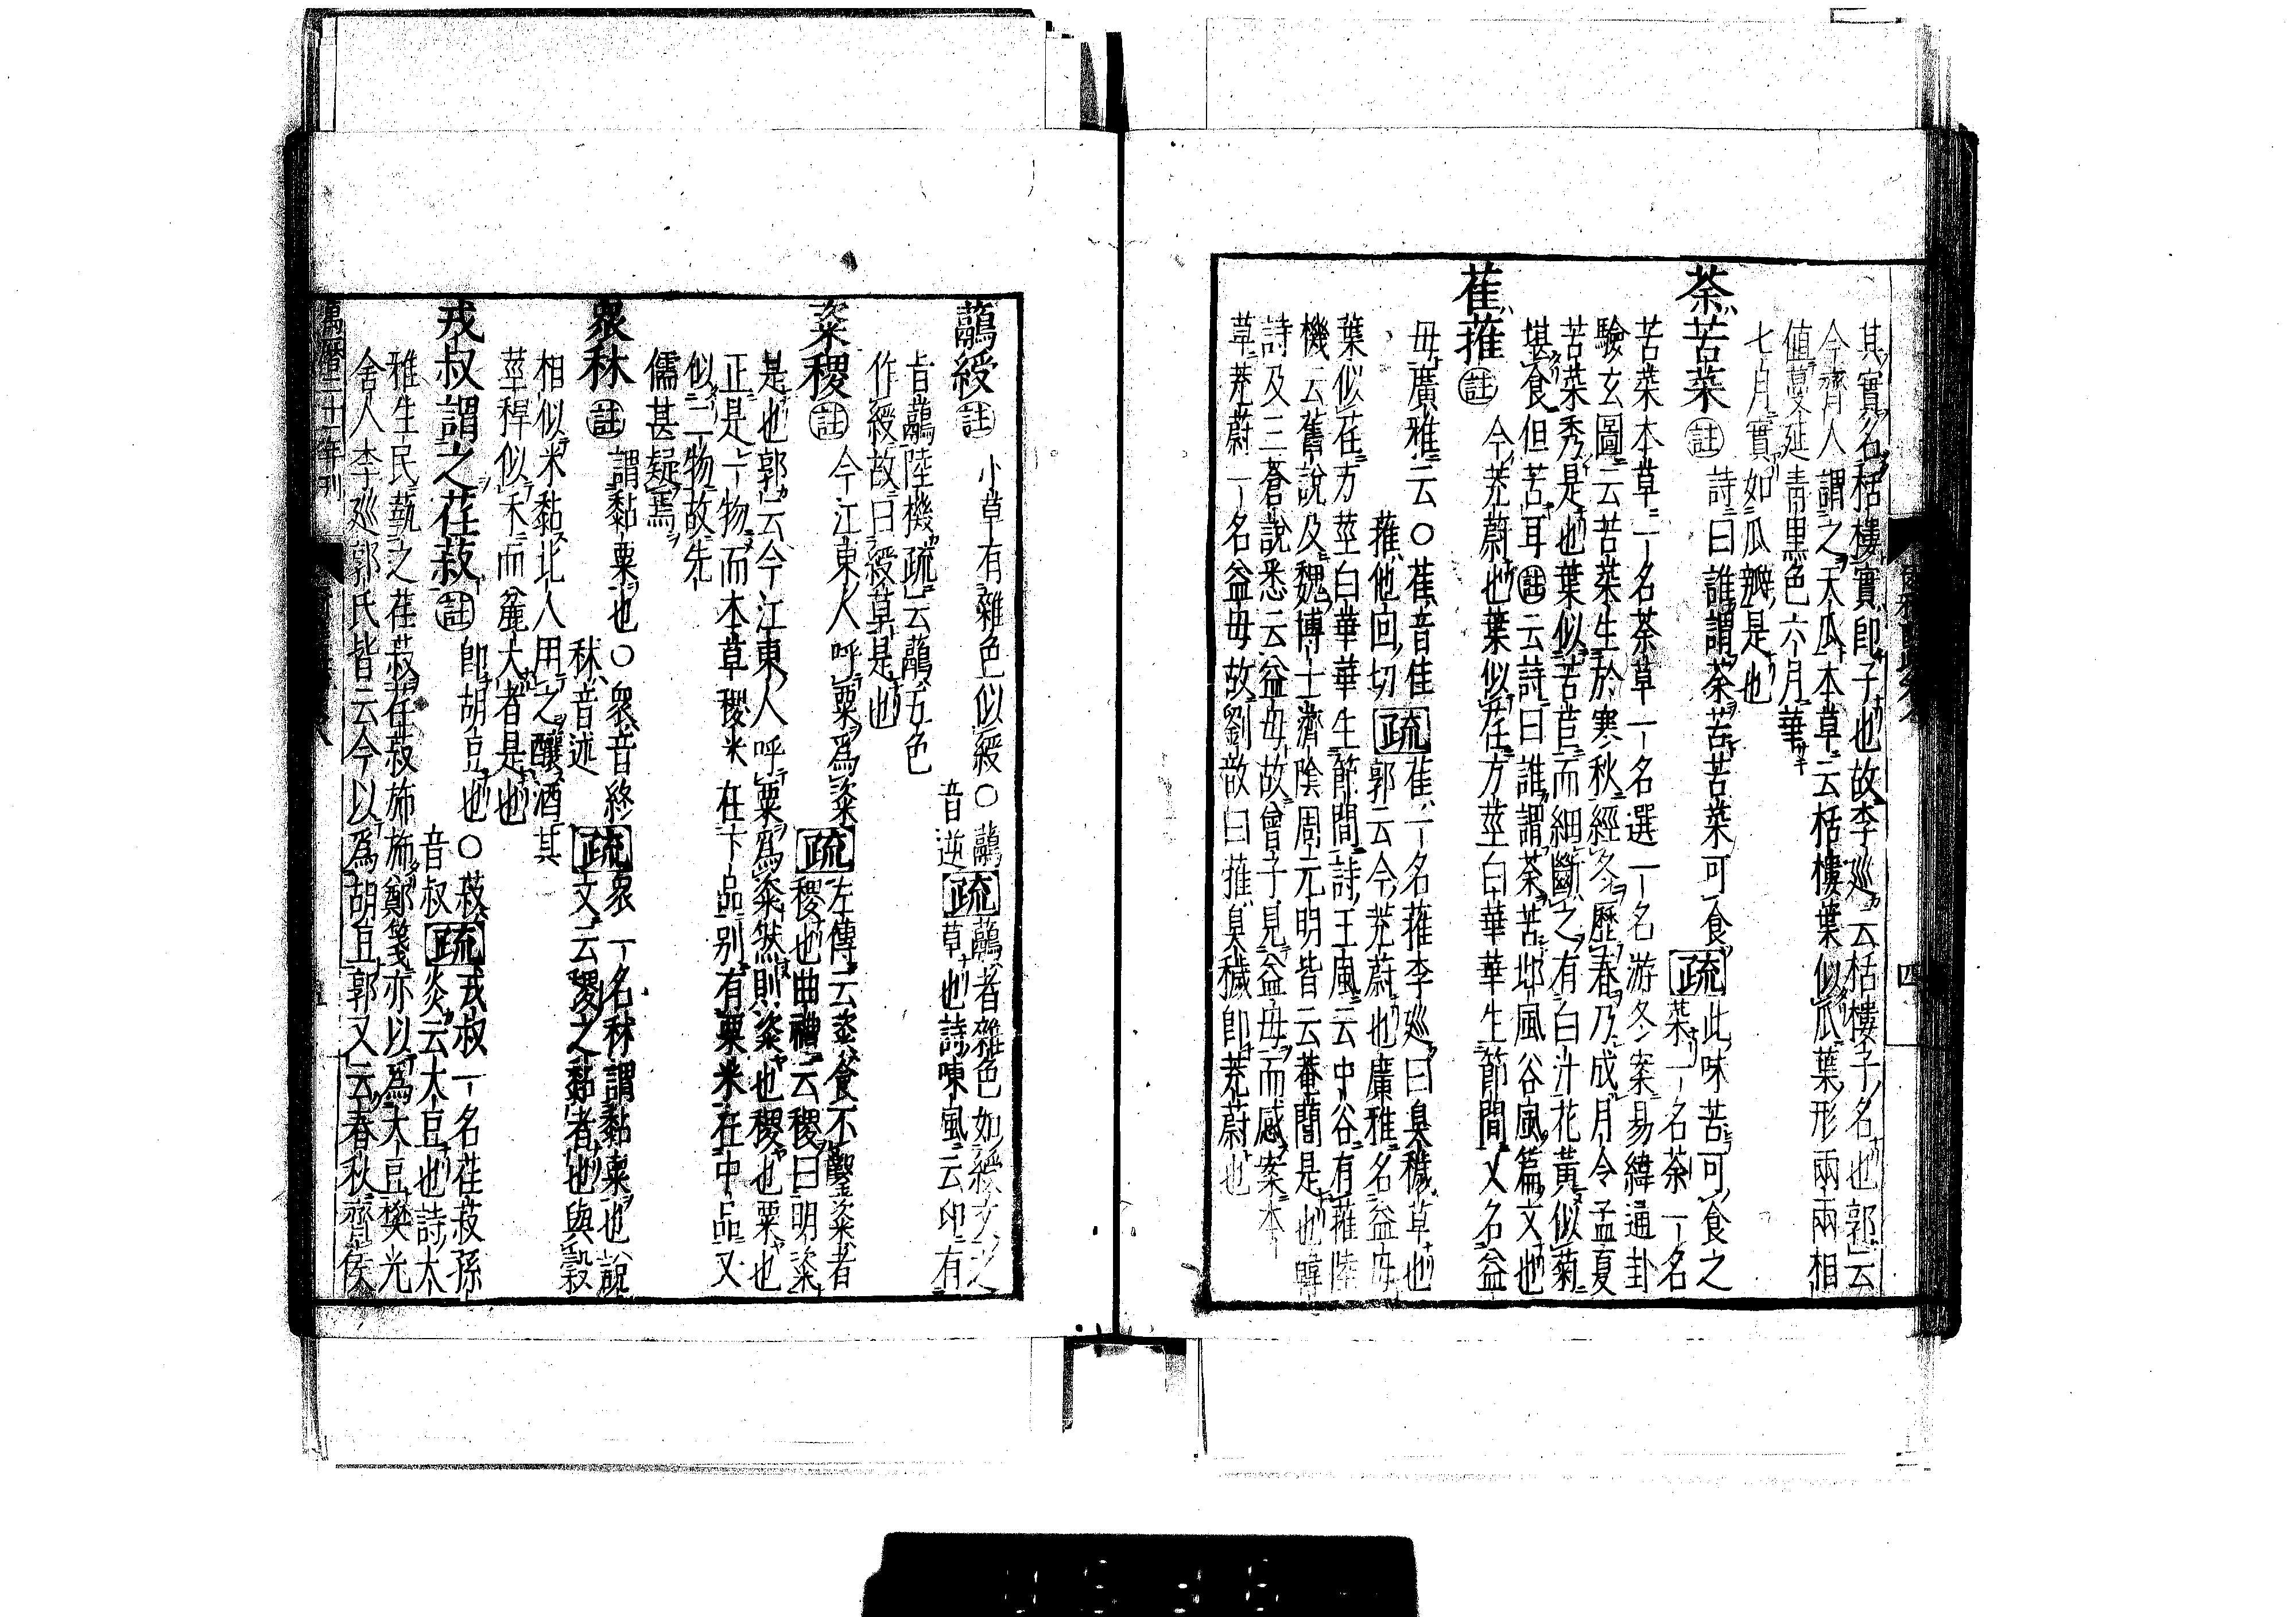 其實名栝樓實即子也故李巡云栝樓子名也郭云
今齊人謂之天瓜本草云栝樓葉似瓜葉形兩兩相
值蔓延青黒色六月華
七月實如瓜瓣是也
荼苦菜 註 詩曰誰謂荼苦苦菜可食 疏 此味苦可食之
菜一名荼一名
苦菜本草一名荼草一名選一名游冬案易緯通卦
驗玄圖云苦菜生於寒秋經冬歷春乃成月令孟夏
苦菜秀是也葉似苦苣而細斷之有白汁花黃似菊
堪食但苦耳 註 云詩曰誰謂荼苦邶風谷風篇文也
萑蓷 註 今茺蔚也葉似荏方莖白華華生節間又名益
母廣雅云○萑音隹
蓷他回切 疏 萑一名蓷李巡曰臭穢草也
郭云今茺蔚也廣雅名益母
葉似荏方莖白華華生節間詩王風云中谷有蓷陸
機云舊說及魏博士濟陰周元明皆云菴䕡是也韓
詩及三蒼說悉云益母故曾子見益母而感案本
草茺蔚一名益母故劉歆曰蓷臭穢即茺蔚也
四
虉綬 註 小草有雜色似綬○虉
音逆 疏 虉者雜色如綬文之
草也詩陳風云卬有
旨虉陸機疏云虉五色
作綬故曰綬草是也
粢稷 註 今江東人呼粟爲粢 疏 左傳云粢食不鑿粢者
稷也曲禮云稷曰明粢
是也郭云今江東人呼粟爲粢然則粢也稷也粟也
正是一物而本草稷米在下品别有粟米在中品又
似二物故先
儒甚疑焉
衆秫 註 謂黏粟也○衆音終
秫音述 疏 衆一名秫謂黏粟也說
文云稷之黏者也與穀
相似米黏北人用之釀酒其
莖稈似禾而麄大者是也
戎叔謂之荏菽 註 即胡豆也○菽
音叔 疏 戎叔一名荏菽孫
炎云大豆也詩大
雅生民蓺之荏菽荏菽旆旆鄭箋亦以爲大豆樊光
舍人李巡郭氏皆云今以爲胡豆郭又云春秋齊侯
萬曆二十一年刊